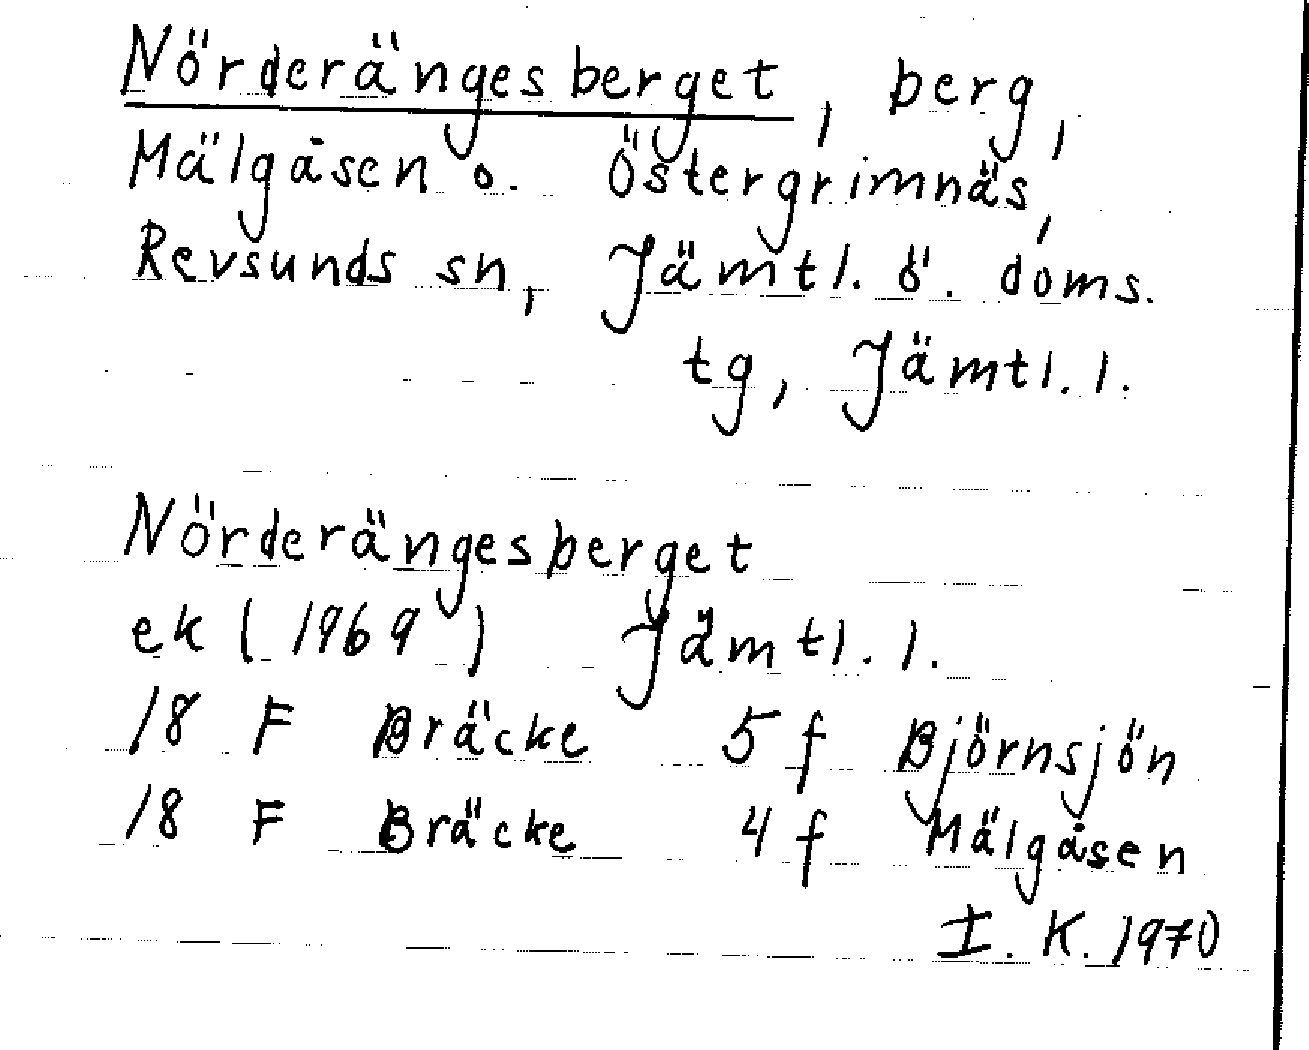 Nörderängesberget, berg,
Mälgåsen o. Östergrimnäs,
Revsunds sn, Jämtl. ö. doms.
tg, Jämtl. l.
Nörderängesberget
ek (1969) Jämtl. l.
18 F Bräcke 5 f Björnsjön
18 F Bräcke 4 f Mälgåsen
I. K. 1970